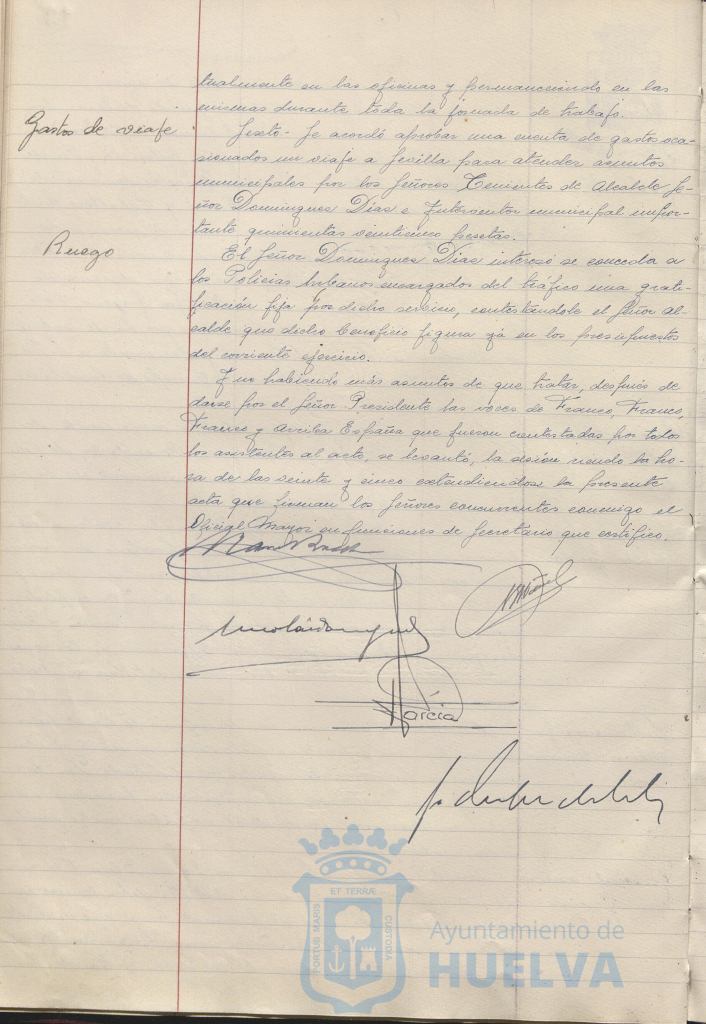 tualmente en las oficinas y permaneciendo en las
mismas durante toda la jornada de trabajo.
Gastos de viaje
Sexto- Se acordó aprobar una cuenta de gastos oca-
sionados un viaje a Sevilla para atender asuntos
municipales por los Señores Tenientes de Alcalde Se-
ñor Dominguez Dias e Interventor municipal impor-
tante quinientas veintiuna pesetas.
Ruego
El Señor Dominguez Dias interesó se conceda a
los Policias Urbanos encargados del tráfico una grati-
ficación fija por dicho servicio, contestándole el Señor Al-
calde que dicho beneficio figura ya en los presupuestos
del corriente ejercicio.
Y no habiendo más asuntos de que tratar, después de
darse por el Señor Presidente las voces de Franco, Franco,
Franco y Arriba España que fueron contestadas por todos
los asistentes al acto, se levantó, la sesión siendo la ho-
ra de las veinte y cinco extendiendose la presente
acta que firman los Señores concurrentes conmigo el
Oficial Mayor en funciones de Secretario que certifico.
García
ET TERRÆ
PORTUS MARIS
CUSTODIA
Ayuntamiento de
HUELVA